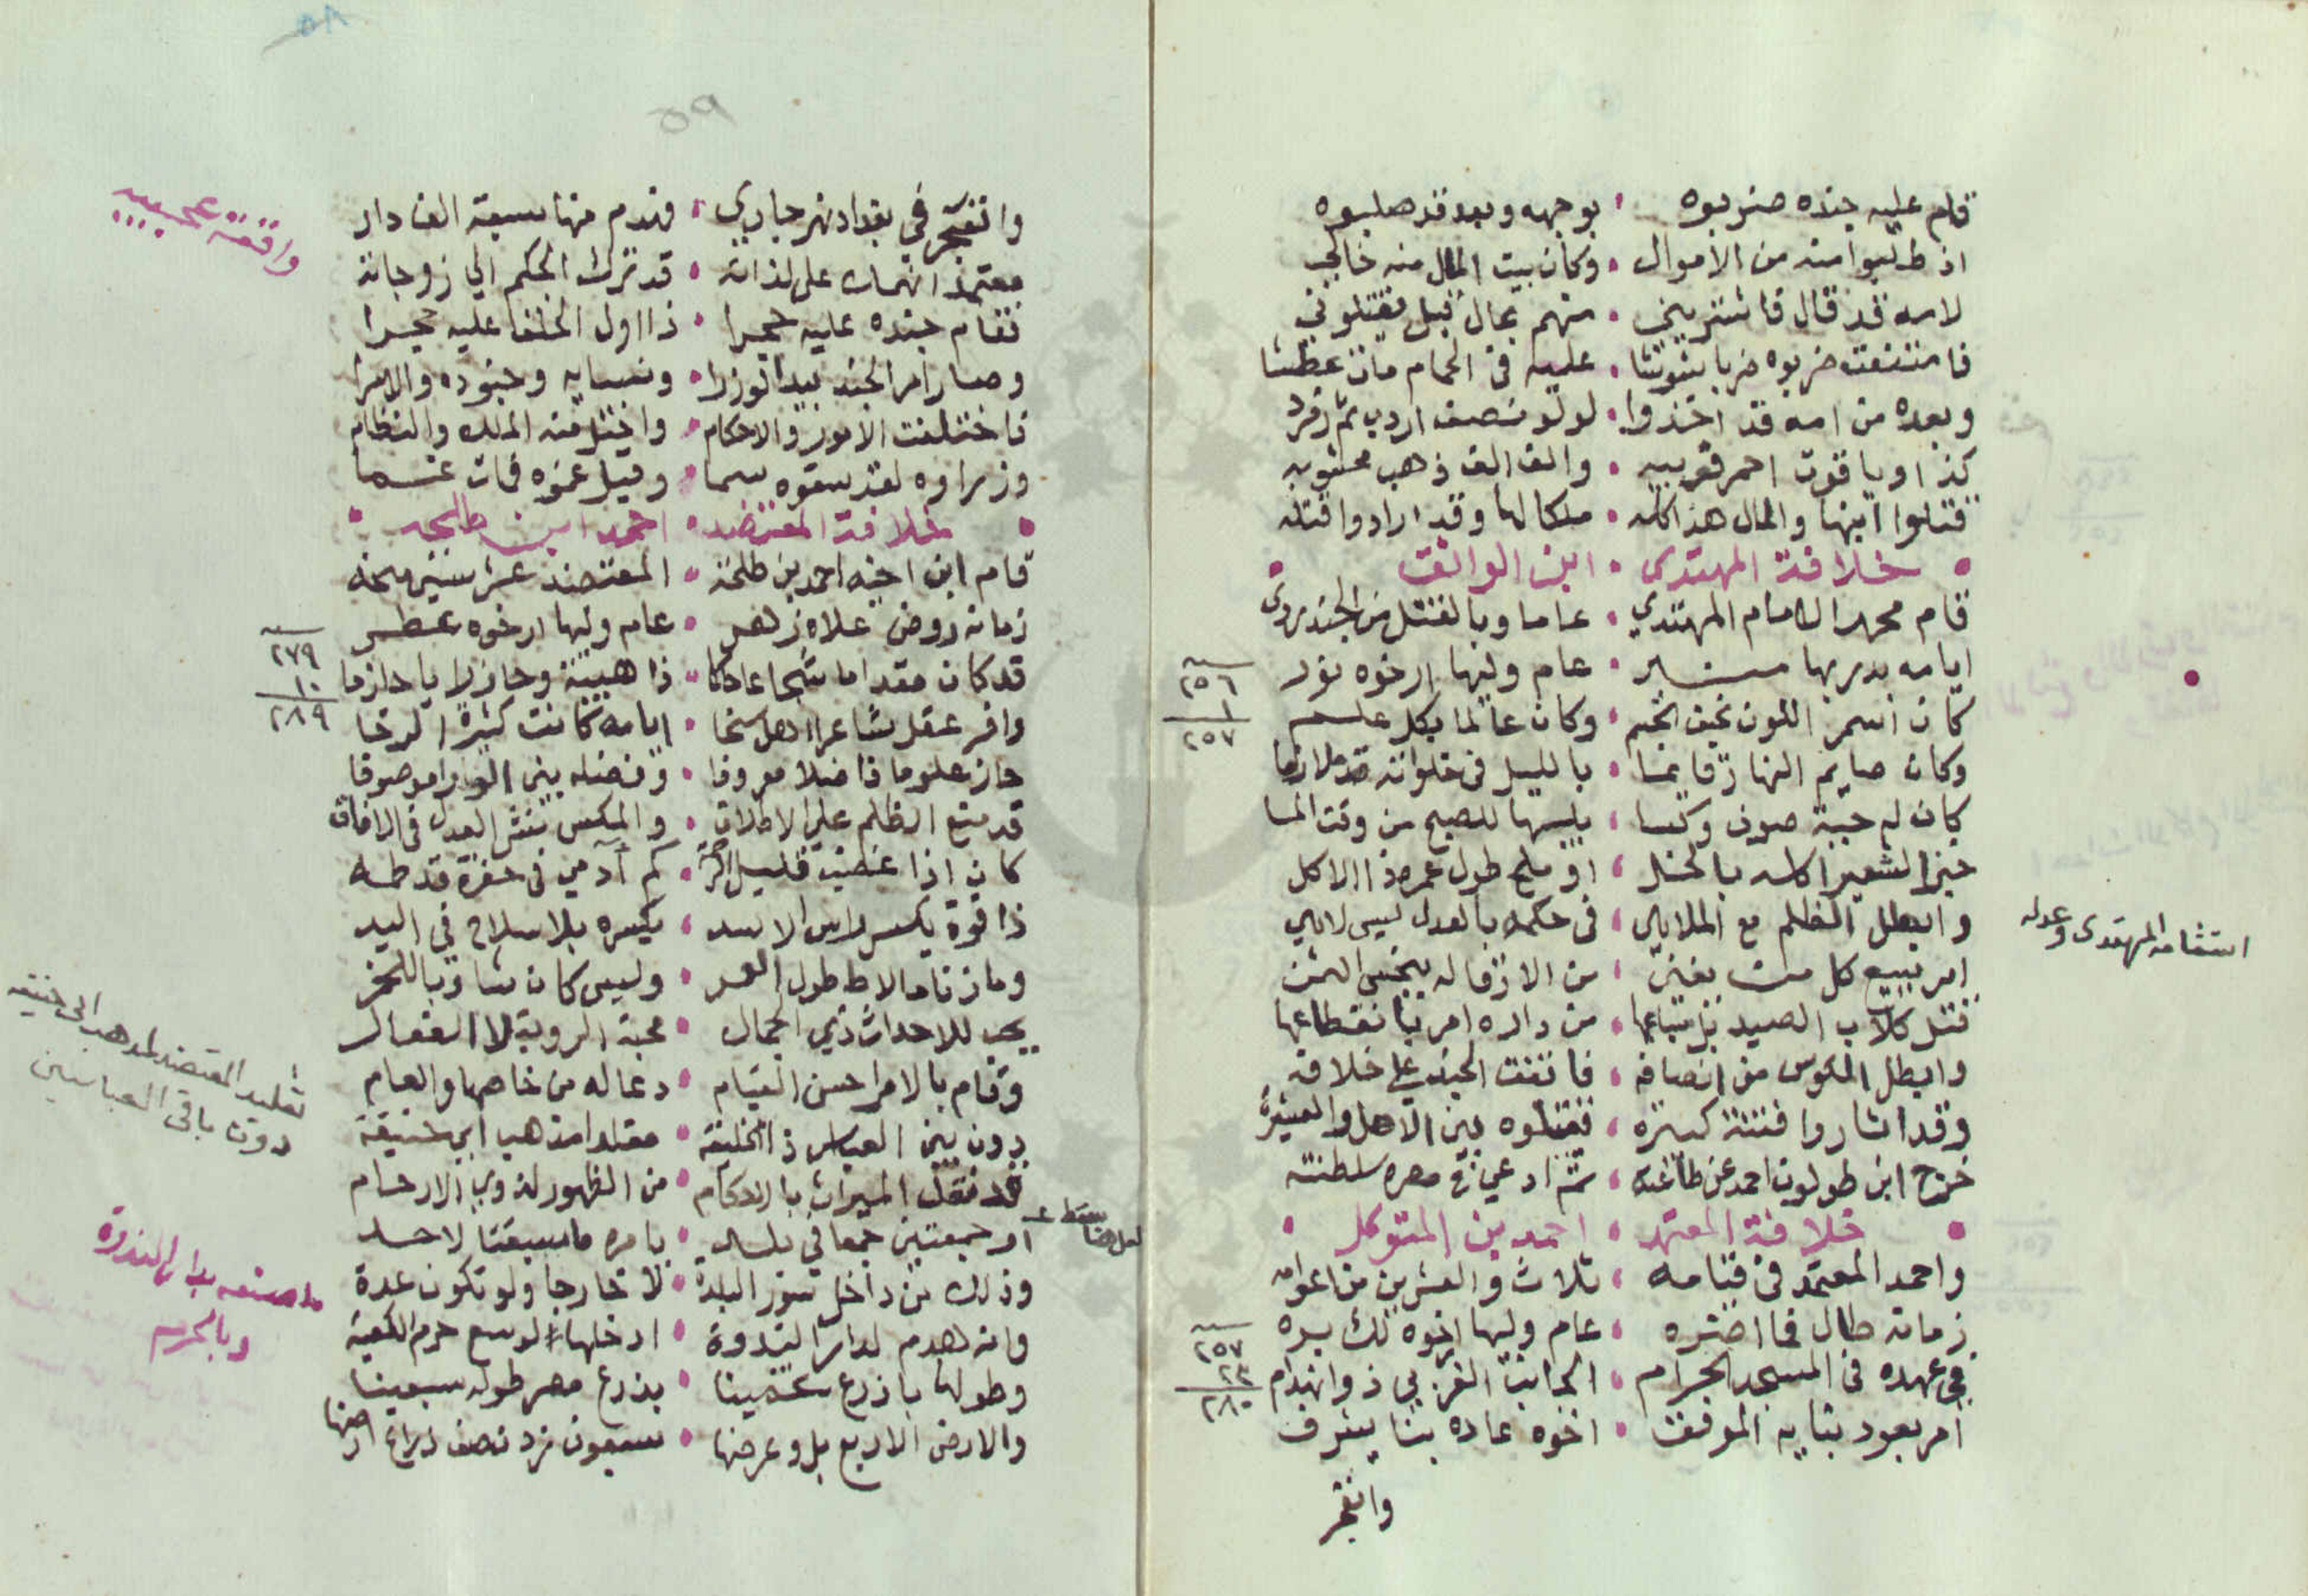 قام عليه جنده ضربوه ، بوجهه وبعد قد صلبوه
اذ طلبوا منه من الاموال ، وكان بيت المال منه خالي
لامه قد قال فاشتريني ، منهم بمال قبل يقتلوني
فامتنعت ضربوه ضربا ، عليه في الحمام مات عطشا
وبعده من امه قد اخذوا ، لولو نصف اردب ثم زمرد
كذا وياقوت احمر قريبه ، والف الف ذهب
قتلوا ابنها والمال هذا كله ، ملكا لها وقد ارادوا قتله
خلافة المهتدي ، ابن الواثق
قام محمد الامام المهتدي ، عاما وبالقتل من الجند ردي
ايامه بدر بها ، عام وليها ارخوه نور
سنه ٢٥٦
١
٢٥٧
كان اسمر اللون نحيف الجسم ، وكان عالما بكل علم
وكان صايم النهار قايما ، بالليل في خلواته قد لازما
كان له جبة صوف وكسا ، يلبسها للصبح من وقت المسا
خبز الشعير اكله بالخل ، او ملح طول عمره ذا الاكل
وابطل الظلم مع الملاهي ، في حكمه بالعدل ليس لاهي
استقامه المهتدى وعدله
امر ببيع كل من تغني ، من الاذقاله ببخس الثمن
قتل كلاب الصيد بل سباعها ، من داره امر بانقطاعها
وابطل المكوس من انصافه ، فاتفقت الجند علي خلافه
وقد اثاروا فتنة كبيره ، فقتلوه بين الاهل والعشيره
خرج ابن طولون احمد عن طاعته ، ثم ادعي في مصره سلطنته
خلافة المعتمد ، احمد بن المتوكل
واحمد المعتمد في قيامه ، ثلاث والعشرين من اعوامه
زمانه طال فما اضره ، عام وليها ارخوه لك يسره
سنه ٢٥٧
٢٣
٢٨٠
في عهده في المسجد الحرام ، الجانب الغربي ذو انهدام
امر بعود بنايه الموفق ، اخوه عاده بنا يشرف
وانفجر
٥٩
وانفجر في بغداد نهر جاري ، فهدم منها سبعة الف دار
واقعة عجيبه
معتمد انهماك على لذاته ، قد ترك الحكم الي زوجاته
فقام جنده عليه حجرا ، ذا اول الخلفا عليه حجرا
وصار امر الجند بيد الوزرا ، ونسايه وجنوده والامرا
فاختلفت الامور والاحكام ، واختل منه الملك والنظام
وزراوه لقد سقوه سما ، وقيل غموه فمات غما
خلافة المعتضد ، احمد ابن طلحه
قام ابن اخيه احمد بن طلحة ، المعتضد عشر سنين منحه
زمانه روض علاه زهر ، عام وليها ارخوه عطر
سنه ٢٧٩
١٠
٢٨٩
قد كان مقداما شجاعا حاكما ، ذا هيبة وحاز رايا حازما
وافر عقل شاعرا اهل سخا ، ايامه كانت كثيرة الرخا
حاز علوما فاضلا معروفا ، وفضله بين الورا موصوفا
قد منع الظلم علي الاطلاق ، والمكس بنشر العدل في الافاق
كان اذا غضب قليل ، كم آدمي في حفرة قد طمه
ذا قوة يكسر راس الاسد ، يكسره بلا سلاح في اليد
وما زنا ما لاط طول العمر ، وليس كان شاربا للخمر
يحب للاحداث ذي الجمال ، محبة الروية لا الفعال
وقام بالامر احسن القيام ، دعا له من خاصها والعام
دون بني العباس ذا الخليفه ، مقلدا مذهب ابي حنيفة
تقليد المعتضد لمذهب ابى حنيفه
دون باقى العباسيين
قد نقل الميراث بالاحكام ، من الظهور لذوي الارحام
امر جمعتين جمعا في بلد ، بامره ما سبقتا لاحد
وذلك من داخل سور البلدة ، لا خارجا ولو تكون عدة
ما صنعه بدار الندوة
وبالحرم
وانه لهدم لدار الندوة ، ادخلها لوسع حرم الكعبة
وطولها باذرع ، بذرع مصر طوله سبعينا
والارض الاربع بل وعرضها ، سبعون زد نصف ذراع ارضها